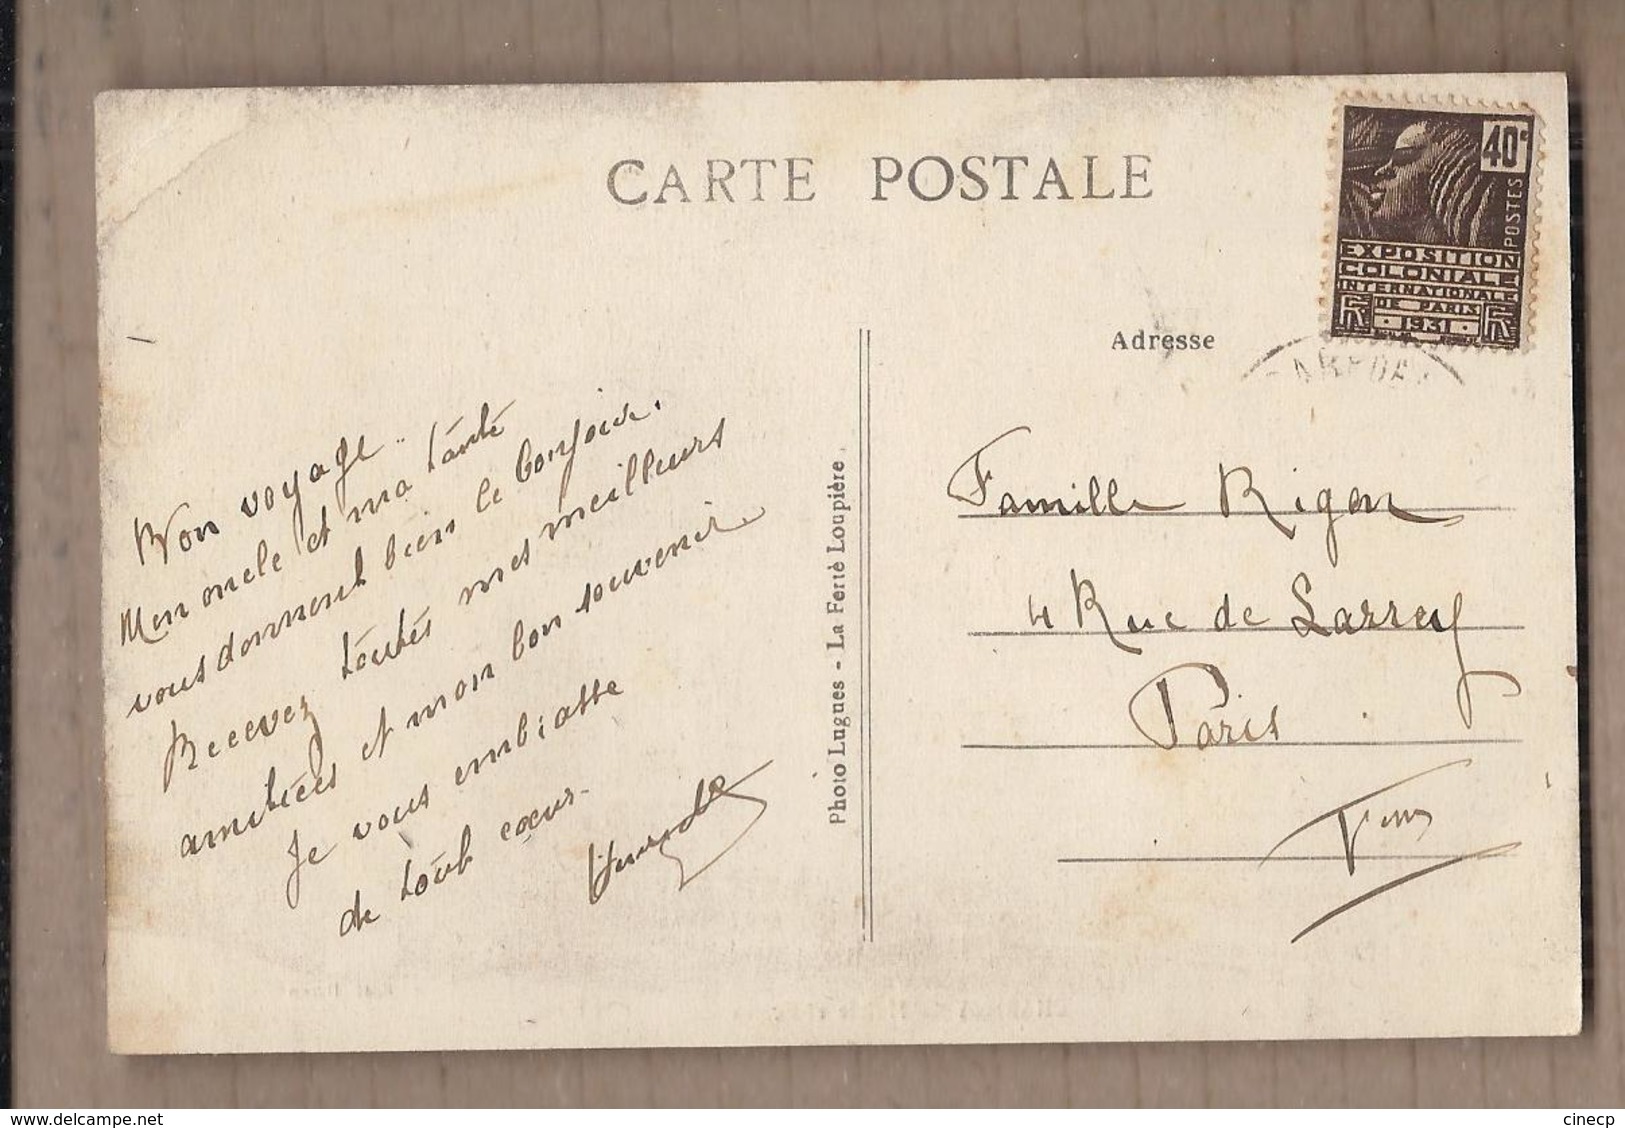 CARTE POSTALE
40c
POSTES
EXPOSITION
COLONIALE
INTERNATIONALE
DE PARIS
1931
Adresse
Bon voyage..
Mon oncle et ma tante
vous donnent bien le bonjour.
Recevez toutes mes meilleurs
amitiées et mon bon souvenir.
Je vous embrasse
de tout cœur.
Photo Lugues - La Ferté Loupière
Famille Rigon
4 Rue de Larrey
Paris
cinecp